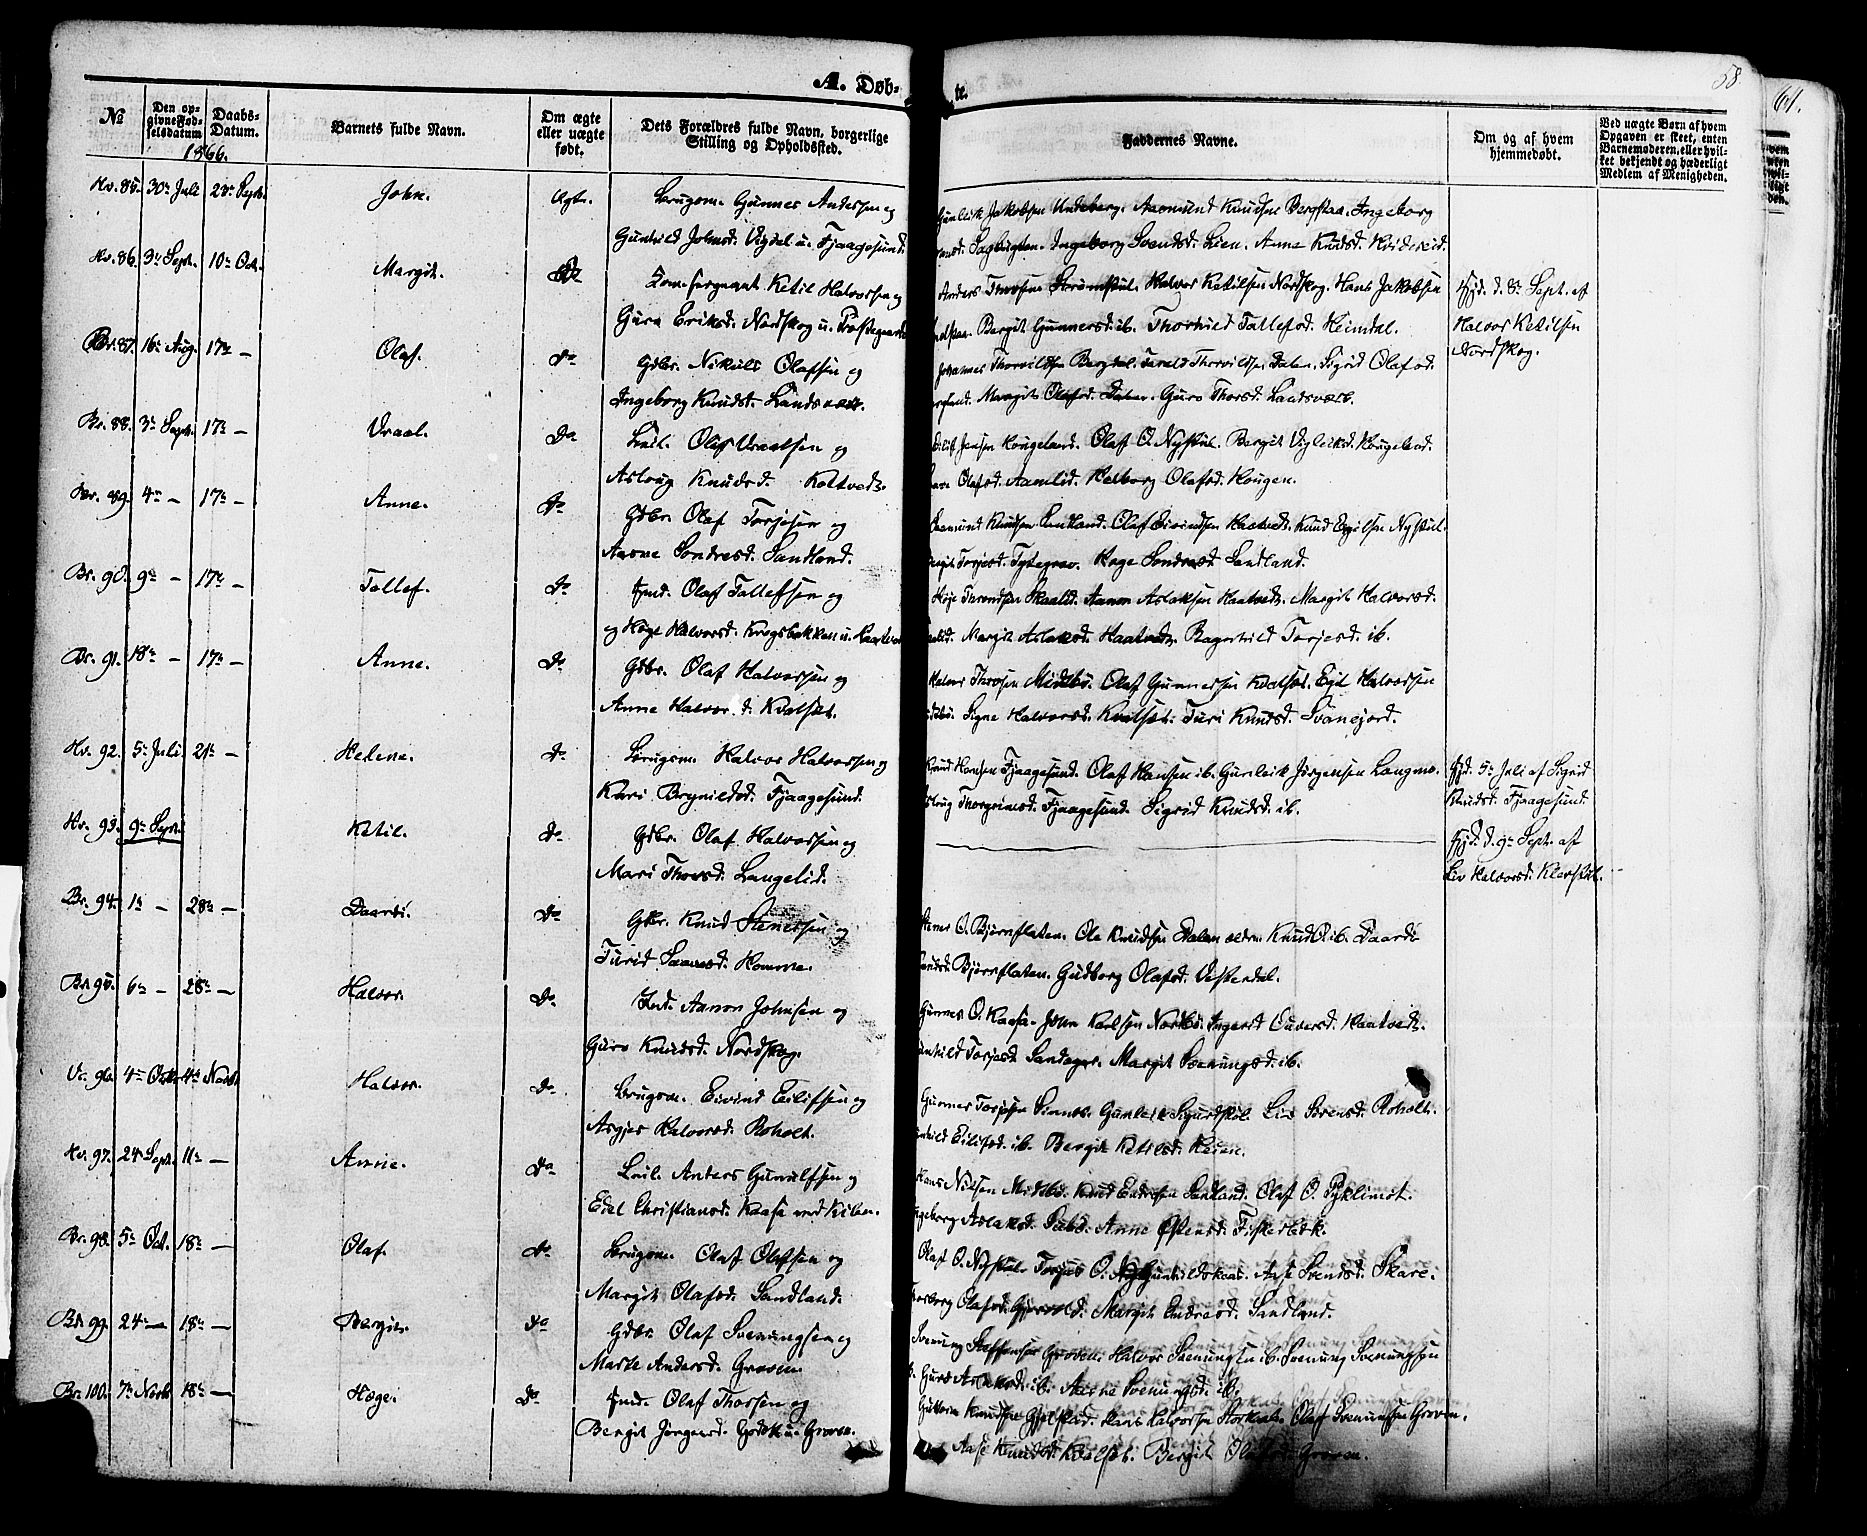 A. Døb-
te.
58
61.
No
Den op-
givne Fød-
selsdatum
Daabs-
Datum.
1866.
Barnets fulde Navn.
Om ægte
eller uægte
født.
Dets Forældres fulde Navn, borgerlige
Stilling og Opholdssted.
Faddernes Navne.
Om og af hvem
hjemmedøbt.
Ved uægte Børn af hvem
Opgaven er skeet, enten
Barnemoderen, eller hvil-
ket bekjendt og hæderligt
Medlem af Menigheden.
Hv. 85. 30te Juli 23de Septr. John. Ægte. Brugsm. Gunner Andersen og
Gunhild Johnsd. Vigdal u. Fjaagesund.
Gunleik Jakobsen Undeberg. Aasmund Knudsen Bergstaa. Ingeborg
Sagbugten. Ingeborg Svendsd. Lien. Anne Knudsd. Hvideseid.
Hv. 86. 3de Sept. 10de Oct. Margit. Do Kom. sergeant Ketil Halvorsen og
Guro Eriksd. Nordskog u. Præstegaarden
Anders Thorsen Strømstul. Halvor Ketilsen Nordskog. Hans Jakobsen
Bergit Gunnersd. ib. Thorhild Tallefsd. Heimdal.
Hjd. d. 8de Sept. af
Halvor Ketilsen
Nordskog.
Br. 87. 16de Aug. 17de — Olaf. Do Gdbr. Nikuls Olafsen og
Ingeborg Knudsd. Landsværk.
Johannes Thorvildsen Bergdal. Tarald Thorvildsen Dalen. Sigrid Olafsd.
Margit Olafsd. Dalen. Guro Thorsd. Landsværk.
Br. 88. 3de Sept. 17de — Vraal. Do Leil. Olaf Vraalsen og
Aslaug Knudsd. Kostvedt.
Jensen Hougeland. Olaf O. Nystul. Bergit Vigleiksd. Hougeland.
Olafsd. Aamlid. Halborg Olafsd. Hougen.
Br. 89. 4de — 17de — Anne. Do Gdbr. Olaf Torjesen og
Aasne Sondresd. Sandland.
Aasmund Knudsen Sandland. Olaf Eivindsen Haatvedt. Knud Eyvilsen Nystul.
Torjesd. Tytegrav. Hæge Sondresd. Sandland.
Br. 90. 9de — 17de — Tallef. Do Hmd. Olaf Tallefsen og
og Høge Halvorsd. Krogsbakken u. Haatvedt
Høje Throndsen Skaalid. Aanon Aslaksen Haatvedt. Margit Halvorsd.
Margit Aslaksd. Haatvedt. Ragnhild Torjesd. ib.
Br. 91. 18de — 17de — Anne. Do Gdbr. Olaf Halvorsen og
Anne Halvorsd. Kvalset.
Halvor Thorsen Midtbø. Olaf Gunnersen Kvalset. Egil Halvorsen
Signe Halvorsd. Kvalset. Turi Knudsd. Svanejord.
Hv. 92. 5te Juli 21de — Helene. Do Brugsm. Halvor Halvorsen og
Kari Brynildsd. Fjaagesund.
Knud Hansen Fjaagesund. Olaf Hansen ib. Gunleik Jørgensen Langmo.
Aslaug Thorgrimsd. Fjaagesund. Sigrid Knudsd. ib.
Hjd. 5te Juli af Sigrid
Knudsd. Fjaagesund.
Hv. 93. 9de Sept. Ketil. Do Gdbr. Olaf Halvorsen og
Mari Thorsd. Langelid.
Hjd. d. 9de Sept. af
Liv Halvorsd. Klevstul.
Br. 94. 1ste — 28de — Daardi. Do Gdbr. Knud Stenersen og
Turid Saavesd. Homme.
Stener O. Bjørnflaten. Ole Knudsen Dalen eldre. Knud O. ib. Daardi
Bjørnflaten. Gudborg Olafsd. Vestendal.
Br. 95. 6te — 28de — Halvor. Do Hmd. Aanon Johnsen og
Guro Knudsd. Nordskog.
Gunner O. Kaasa. John Karlsen Nordbø. Ingerd Eiversd. Haatvedt.
Gunhild Torjesd. Sandager. Margit Svenungsd. ib.
Vr. 96. 4de Octbr. 4de Novbr. Halvor. Do Brugsm. Eivind Eilifsen og
Asgjer Halvorsd. Roholt.
Gunner Torjesen Sinnes. Gunleik Sigurdssøl. Liv Sørensd. Roholt.
Gunhild Eilifsd. ib. Bergit Ketilsd. Heien.
Hv. 97. 24de Sept. 11te — Anne. Do Leil. Anders Gunulfsen og
Edel Christiansd. Kaasa ved Kilen.
Hans Nilsen Midtbø. Knud Endresen Sandland. Olaf O. Syklimot.
Ingeborg Aslaksd. Sæbø. Anne Østensd. Fiskerbæk.
Br. 98. 5te Oct. 18de — Olaf. Do Brugsm. Olaf Olafsen og
Margit Olafsd. Sandland.
Olaf O. Nystul. Torjus O. Gunhildskaas. Aase Svendsd. Skare.
Olafsd. Gjervold. Margit Endresd. Sandland.
Br. 99. 24de — 18de — Bergit. Do Gdbr. Olaf Svenungsen og
Marte Andersd. Groven.
Svenung Steffensen Groven. Halvor Svenungsen ib. Svenung Svenungsen
Guro Aslaksd. ib. Aasne Svenungsd. ib.
Br. 100. 7de Novb. 18de — Hæge. Do Hmd. Olaf Thorsen og
Bergit Jørgensd. Godk u. Groven.
Guttorm Knudsen Gjelstad. Hans Halvorsen Storkaas. Olaf Svenungsen Groven.
Aase Knudsd. Kvalset. Bergit Olafsd. Groven.